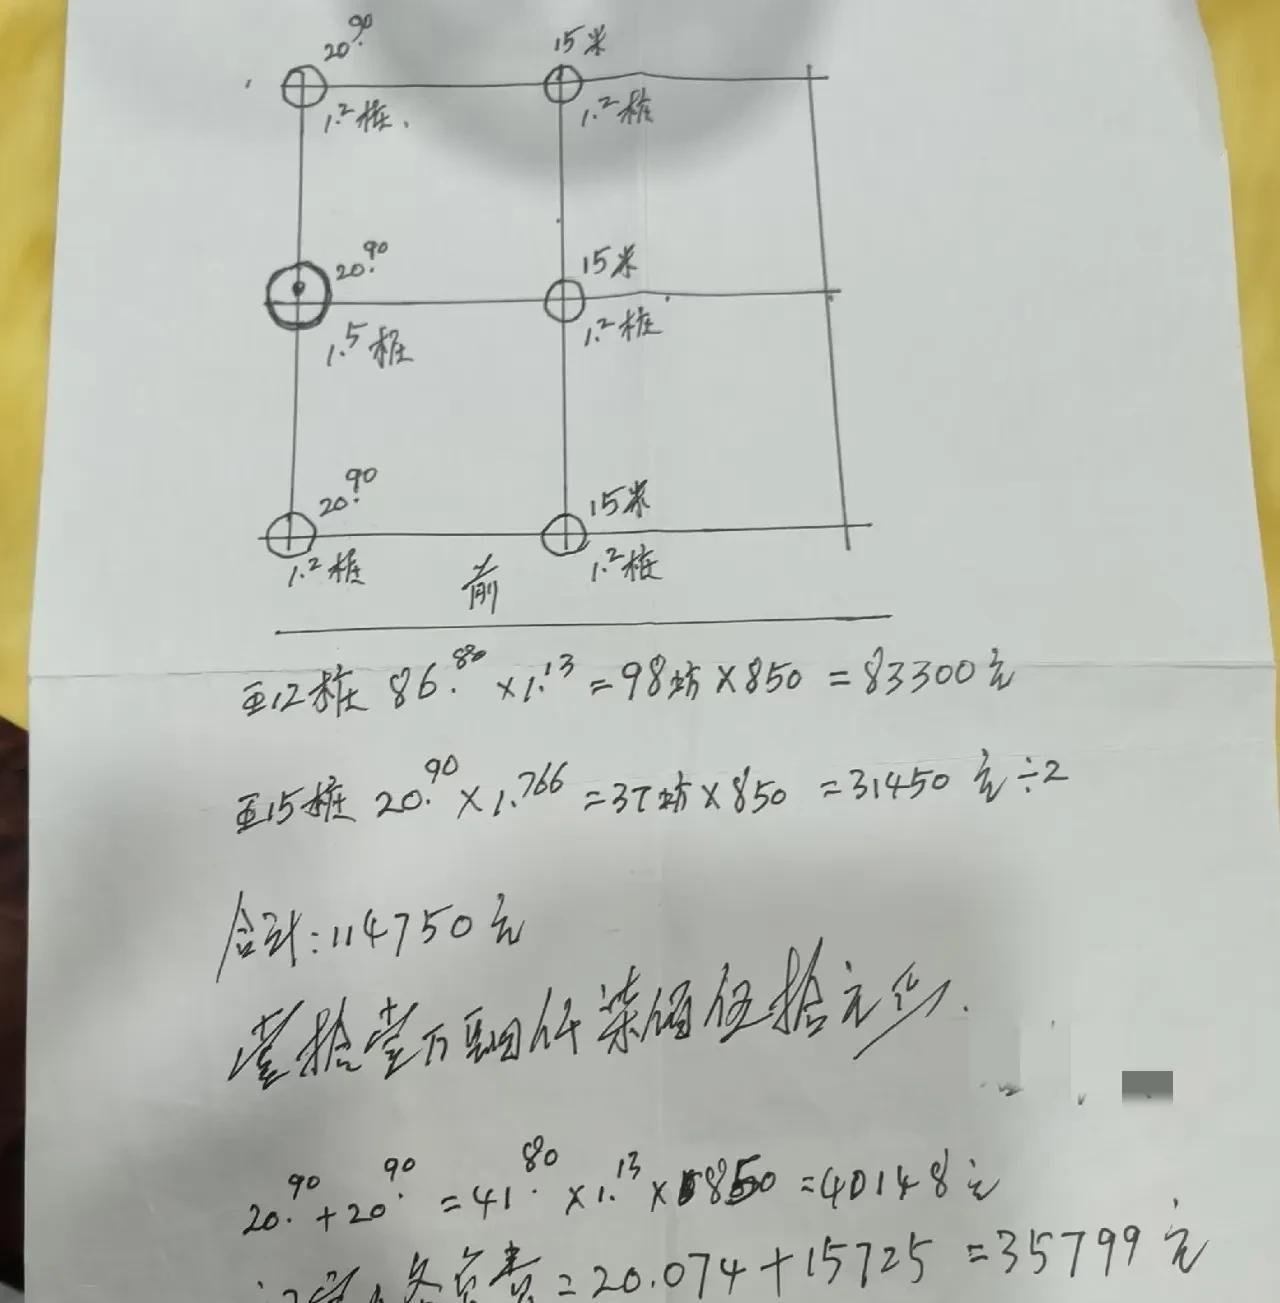 20.90 15米
1.2桩. 1.2桩
20.90 15米
1.5桩 1.2桩
20.90 15米
1.2桩 前 1.2桩
12桩 86.80×1.13=98坊×850=83300元
15桩 20.90×1.766=37坊×850=31450元÷2
合计:114750元
壹拾壹万肆仟柒佰伍拾元
20.90+20.90=41.80×1.13×850=40148元
=20.074+15725=35799元